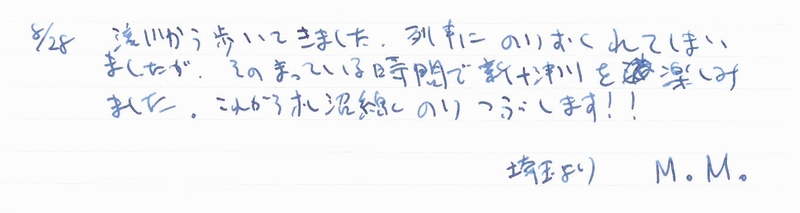 8/28 滝川から歩いてきました。列車にのりおくれてしまい
ましたが、そのまっている時間で新十津川を楽しみ
ました。これから札沼線にのりつぶします!!
埼玉より M.M.